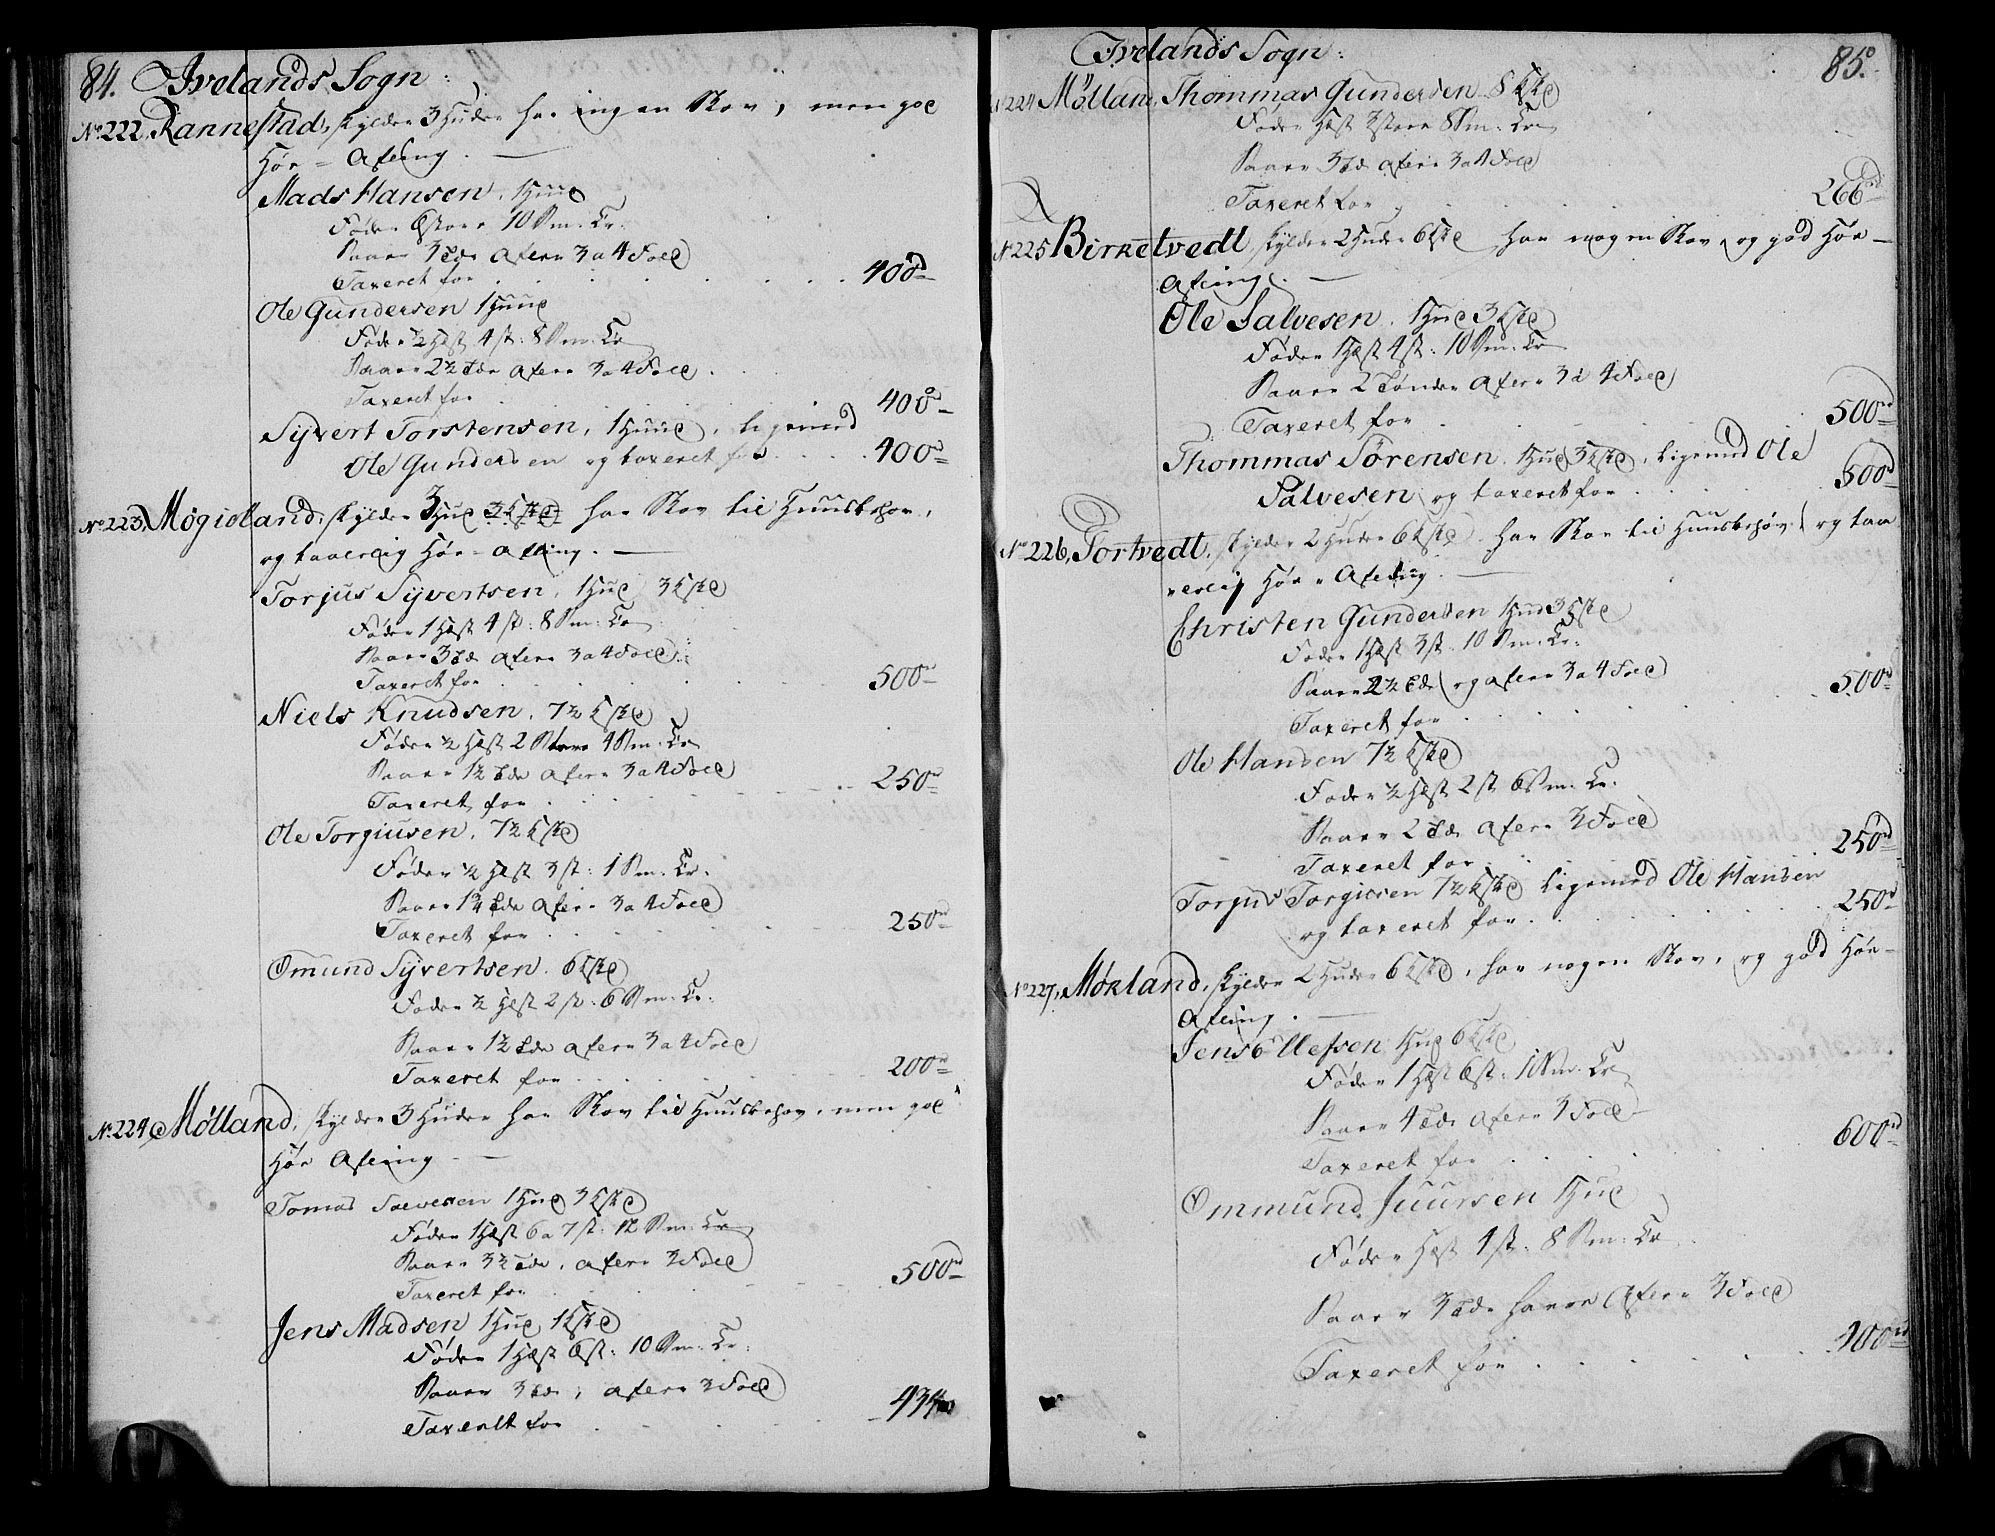 84. Ivelands Sogn:
No 222, Rannestad, skylder 3 Huder har ingen Skov, men god
Høe-Afling.
Mads Hansen, 1 Hud
Føder 6 store 10 Sm: Cr.
Saaer 3 Tdr afler 3 a 4 Fold
Taxeret for 400 rd
Ole Gundersen 1 Hud
Føder ½ Hest 4 st: 8 Sm: Cr
Saaer 2½ Tdr afler 3 a 4 Fold
Taxeret for 400 rd
Syvert Torstensen, 1 Hud, ligemed
Ole Gundersen og taxeret for 400 rd
No 223, Møgioland, skylder 3 Hud 3 Skd har Skov til Huusbehov,
og taalelig Høe-Afling.
Torjus Syvertsen, 1 Hud 3 Skd
Føder 1 Hest 4 st: 8 Sm: Cr
Saaer 3 Tdr afler 3 a 4 Fold
Taxeret for 500 rd
Niels Knudsen, 7½ Skd
Føder ½ Hest 2 Store 4 Sm: Cr
Saaer 1½ Tdr afler 3 a 4 Fold
Taxeret for 250 rd
Ole Torgiusen, 7½ Skd
Føder ½ Hest 3 st: 1 Sm: Cr.
Saaer 1¾ Tdr afler 3 a 4 Fold
Taxeret for 250 rd
Omund Syvertsen, 6 Skd
Føder ½ Hest 2 st: 6 Sm: Cr.
Saaer 1½ Tdr afler 3 a 4 Fold
Taxeret for 200 rd
No 224, Mølland, skylder 3 Huder har Skov til Huusbehov, men god
Høe Afling
Tomas Salvesen 1 Hud 3 Skd
Føder 1 Hest 6 a 7 st: 12 Sm: Cr
Saaer 3½ Tdr, afler 3 Fold
Taxeret for 500 rd
Jens Madsen 1 Hud 1 Skd
Føder 1 Hest 6 st: 10 Sm: Cr.
Saaer 3 Tdr, afler 3 Fold
Taxeret for 434
Ivelands Sogn: 85.
No 224 Mølland, Thommas Gundersen 8 Skd
Føder Hest 3 store 8 Sm: Cr
Saaer 3 Td afler 3 a 4 Fold
Taxeret for 266 rd
No 225 Birketvedt, skylder 2 Huder 6 Skd har nogen Skov, og god Høe-
Afling.
Ole Salvesen, 1 Hud 3 Skd
Føder 1 Hest 4 st: 10 Sm: Cr
Saaer 2 Tønder afler 3 a 4 Fold
Taxeret for 500 rd
Thommas Sørensen, 1 Hud 3 Skd, ligemed Ole
Salvesen og taxeret for 500 rd
No 226, Tortvedt, skylder 2 Huder 6 Skd har Skov til Huusbehov, og taa
lelig Høe-Afling.
Christen Gundersen 1 Hud 3 Skd
Føder 1 Hest 3 st: 10 Sm: Cr.
Saaer 2½ Tdr og afler 3 a 4 Fold
Taxeret for 500 rd
Ole Hansen 7½ Skd
Føder ½ Hest 2 st 6 Sm: Cr.
Saaer 2 Tdr afler 3 Fold
Taxeret for 250 rd
Torjus Torgiersen 7½ Skd ligemed Ole Hansen
og taxeret for 250 rd
No 227, Mørland, skylder 2 Huder 6 Skd, har nogen Skov, og god Høe-
Afling.
Jens Ollefsen 1 Hud 6 Skd
Føder 1 Hest 6 st: Sm: Cr
Saaer 4 Tdr afler 3 Fold
Taxeret for 600 rd
Ommund Juursen 1 Hud
Føder Hest 4 st: 8 Sm: Cr
Saaer 3 Tdr havre afler 3 Fold
Taxeret for 400 rd